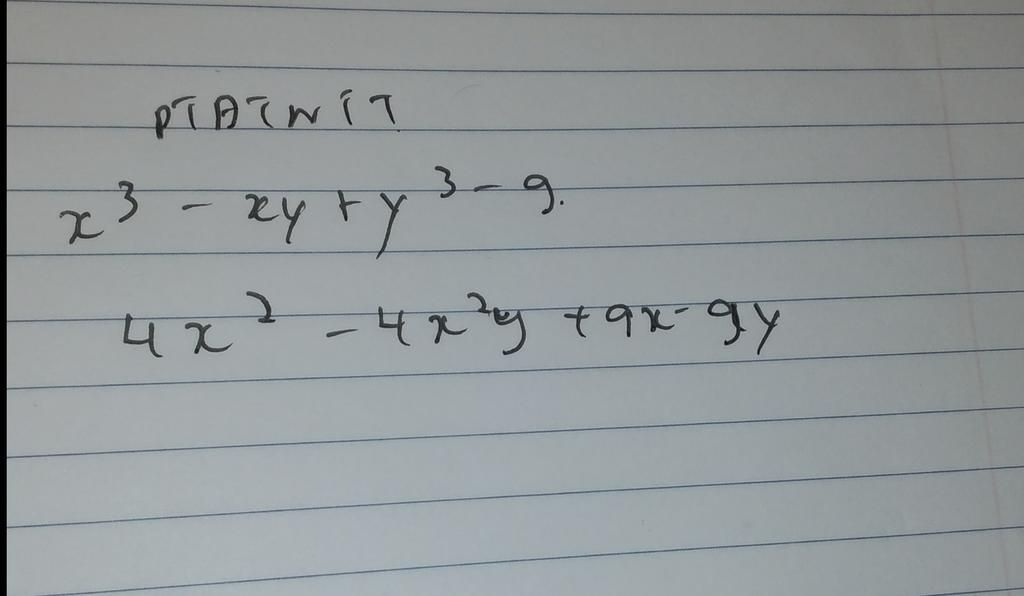 PTATNIT
x³ - xy + y³ - 9.
4x² - 4x²y + 9x - 9y